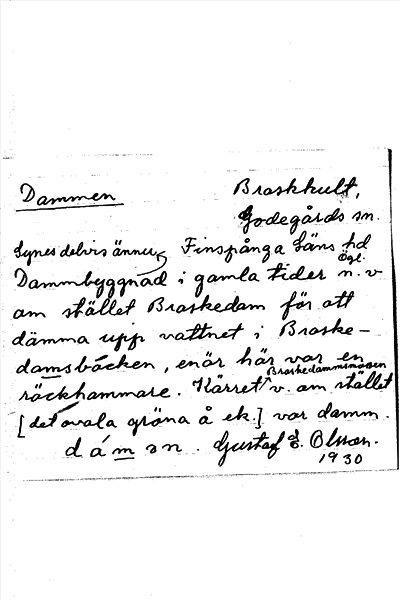 Dammen
Braskhult,
Godegårds sn.
Finspånga läns hd
Ögl.
Synes delvis ännu
Dammbyggnad i gamla tider n.v
om stället Braskedam för att
dämma upp vattnet i Braske-
damsbäcken, enär här var en
räckhammare. Kärret v. om stället
Braskedammsmossen
[det ovala gröna å ek.] var damm.
dámən. Gustaf E. Olsson.
1930